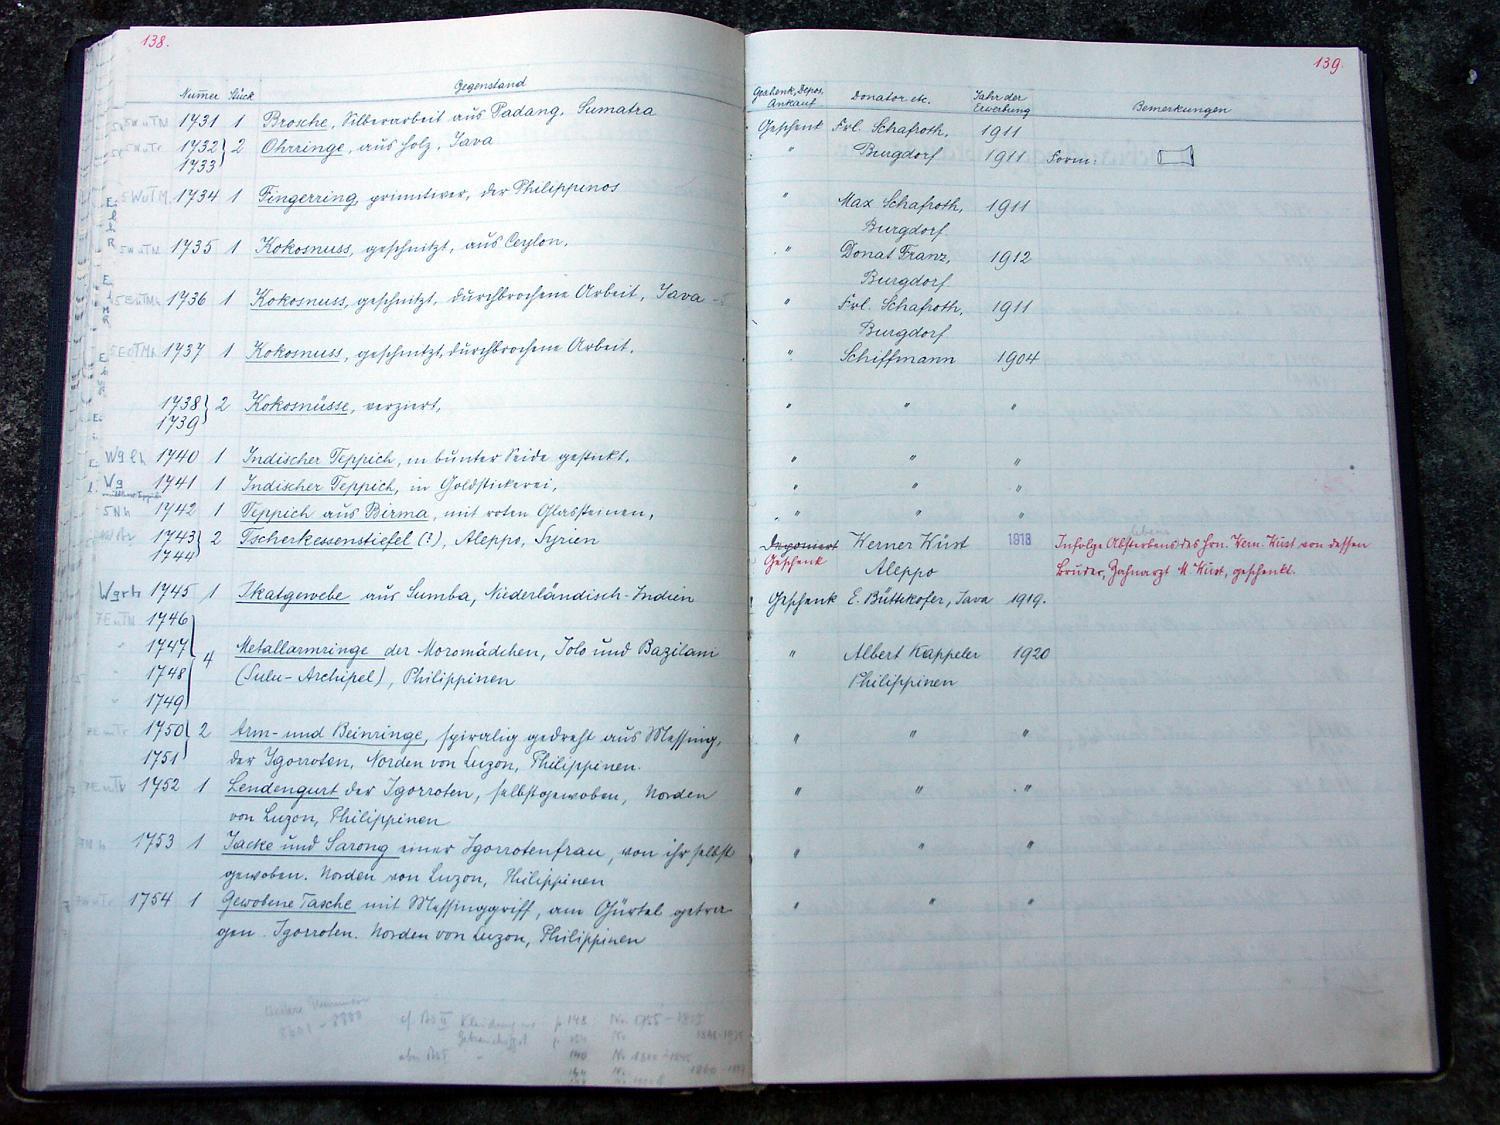 138.
Numer Stück Gegenstand
1731 1 Brosche, Silberarbeit aus Padang, Sumatra
1732 } 2 Ohrringe, aus Holz, Java
1733
1734 1 Fingerring, primitiver, der Philippinos
1735 1 Kokosnuss, geschnitzt, aus Ceylon.
1736 1 Kokosnuss, geschnitzt, durchbrochene Arbeit, Java
1737 1 Kokosnuss, geschnitzt, durchbrochene Arbeit.
1738 } 2 Kokosnüsse, verziert,
1739
1740 1 Indischer Teppich, in bunter Seide gestickt.
1741 1 Indischer Teppich, in Goldstickerei,
1742 1 Teppich aus Birma, mit roten Glassteinen,
1743 } 2 Tscherkessenstiefel (?), Aleppo, Syrien
1744
1745 1 Ikatgewebe aus Sumba, Niederländisch-Indien
1746
1747 } 4 Metallarmringe der Moromädchen, Jolo und Bazilani
1748 (Sulu-Archipel), Philippinen
1749
1750 } 2 Arm- und Beinringe, spiralig gedreht aus Messing,
1751 der Igorroten, Norden von Luzon, Philippinen.
1752 1 Lendengurt der Igorroten, selbstgewoben, Norden
von Luzon, Philippinen
1753 1 Jacke und Sarong einer Igorrotenfrau, von ihr selbst
gewoben. Norden von Luzon, Philippinen
1754 1 Gewobene Tasche mit Messinggriff, am Gürtel getra
gen. Igorroten. Norden von Luzon, Philippinen
139.
Geschenk, Depos. Donator etc. Jahr der Bemerkungen
Ankauf Erwerbung
Geschenk Frl. Schafroth, 1911
" Burgdorf 1911 Form:
" Max Schafroth, 1911
Burgdorf
" Donat Franz, 1912
Burgdorf
" Frl. Schafroth, 1911
Burgdorf
" Schiffmann 1904
" " "
" " "
" " "
" " "
Deponiert Werner Küst 1918 Infolge Absterbens des Hrn. Wern. Küst von dessen
Geschenk Aleppo Bruder, Zahnarzt M. Küst, geschenkt.
Geschenk E. Büttikofer, Java 1919.
" Albert Kappeler 1920
Philippinen
" " "
" " "
" " "
" " "